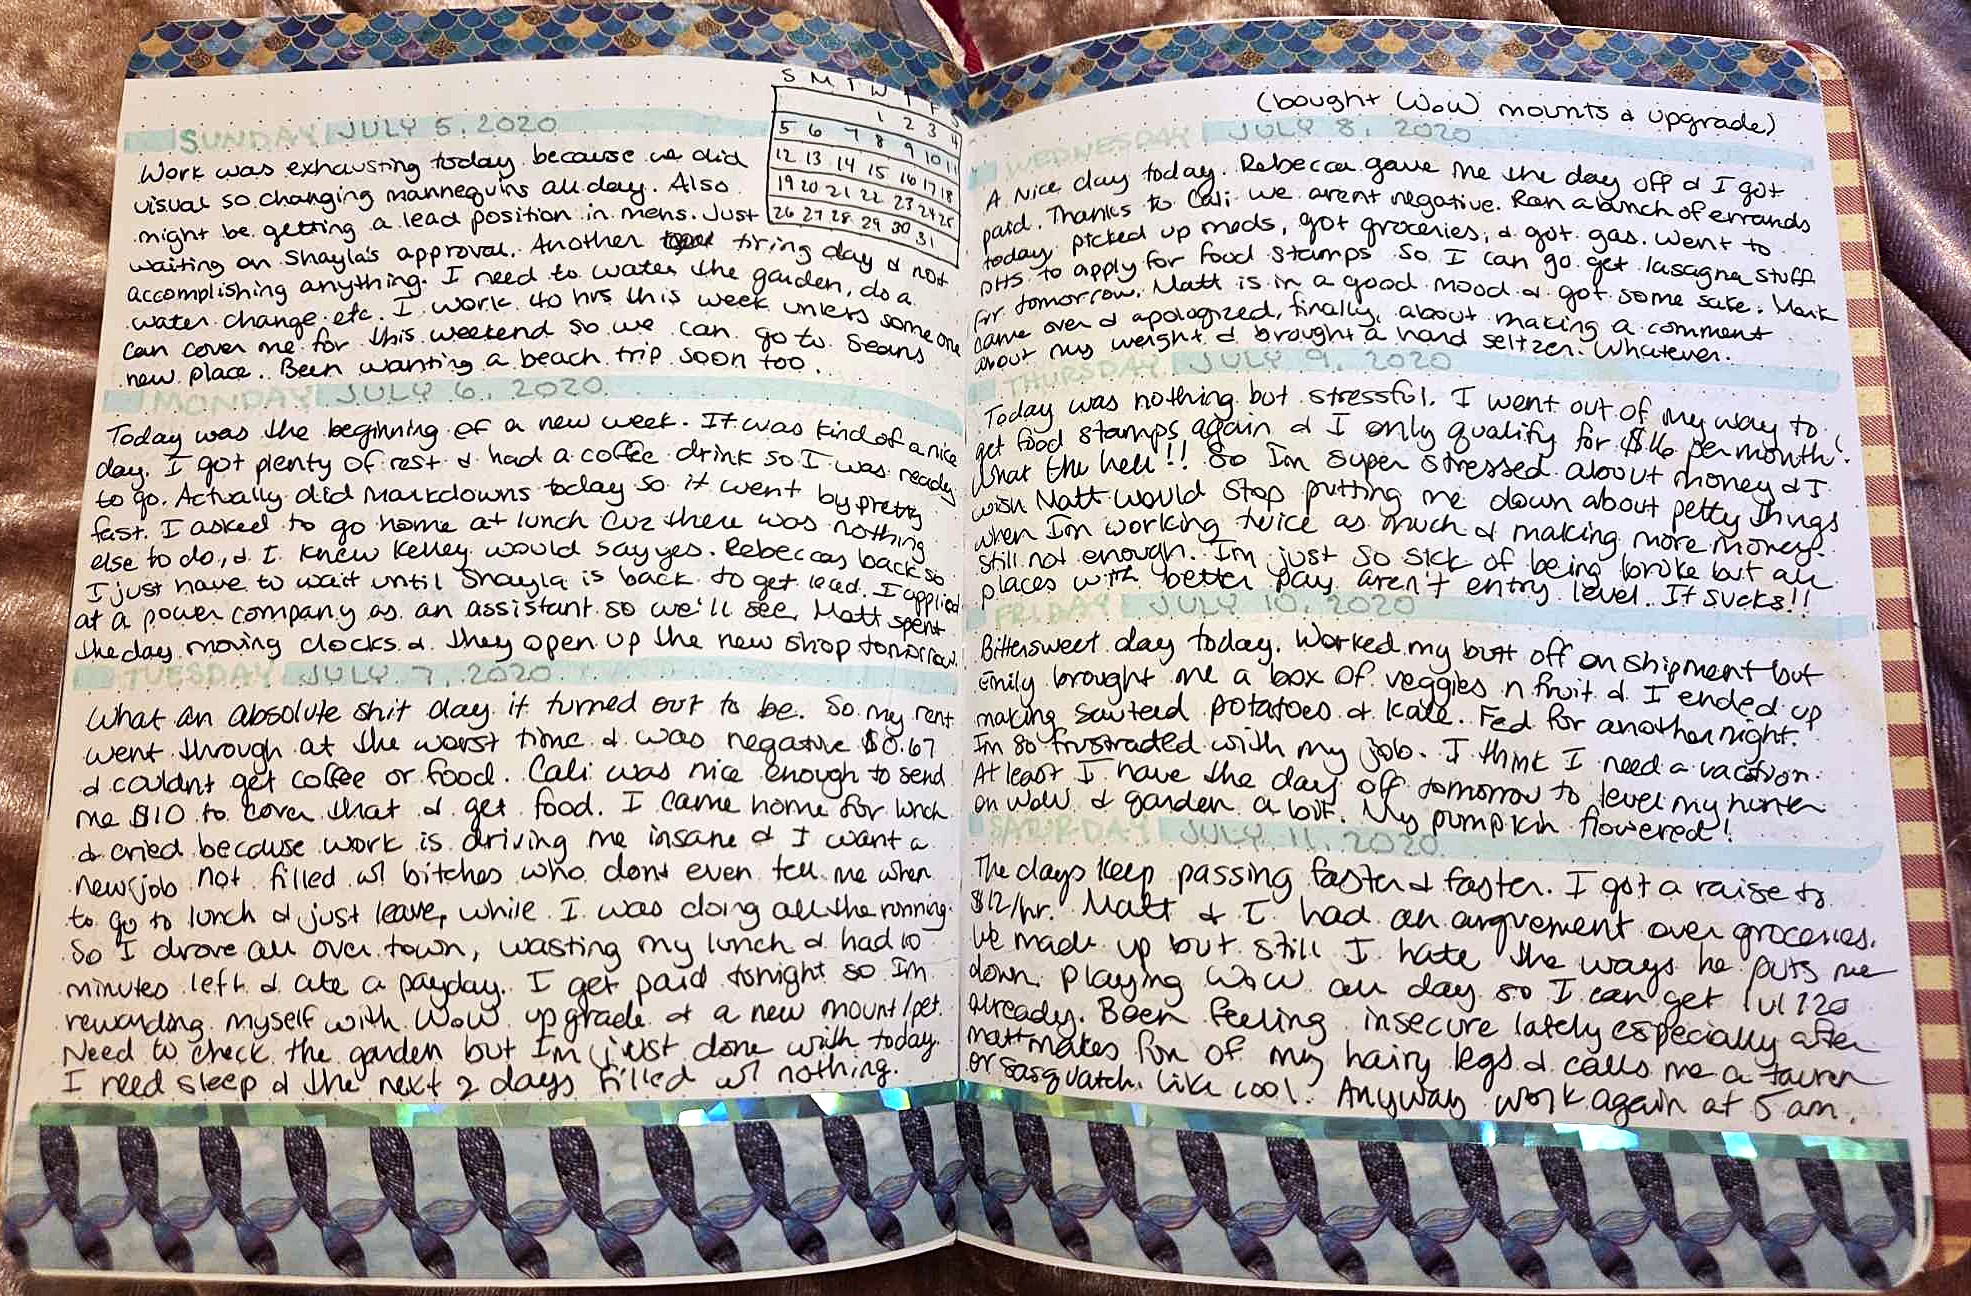 S M T W T F S
1 2 3 4
5 6 7 8 9 10 11
12 13 14 15 16 17 18
19 20 21 22 23 24 25
26 27 28 29 30 31
SUNDAY JULY 5, 2020
Work was exhausting today because we did
visual so changing mannequins all day. Also
might be getting a lead position in mens. Just
waiting on Shayla's approval. Another tiring day & not
accomplishing anything. I need to water the garden, do a
water change etc. I work 40 hrs this week unless someone
can cover me for this weekend so we can go to Seans
new place. Been wanting a beach trip soon too.
MONDAY JULY 6, 2020
Today was the beginning of a new week. It was kind of a nice
day. I got plenty of rest & had a coffee drink so I was ready
to go. Actually did markdowns today so it went by pretty
fast. I asked to go home at lunch cuz there was nothing
else to do, & I knew Kelley would say yes. Rebeccas back so
I just have to wait until Shayla is back to get lead. I applied
at a power company as an assistant so we'll see. Matt spent
the day moving clocks & they open up the new shop tomorrow.
TUESDAY JULY 7, 2020
What an absolute shit day it turned out to be. So my rent
went through at the worst time & was negative $0.67
& couldnt get coffee or food. Cali was nice enough to send
me $10 to cover that & get food. I came home for lunch
& cried because work is driving me insane & I want a
new job not filled w/ bitches who dont even tell me when
to go to lunch & just leave, while I was doing all the running.
So I drove all over town, wasting my lunch & had 10
minutes left & ate a payday. I get paid tonight so Im
rewarding myself with WoW upgrade & a new mount/pet.
Need to check the garden but I'm just done with today.
I need sleep & the next 2 days filled w/ nothing.
(bought WoW mounts & upgrade)
WEDNESDAY JULY 8, 2020
A nice day today. Rebecca gave me the day off & I got
paid. Thanks to Cali we arent negative. Ran a bunch of errands
today, picked up meds, got groceries, & got gas. Went to
DHS to apply for food stamps so I can go get lasagna stuff
for tomorrow. Matt is in a good mood & got some sake. Mark
came over & apologized, finally, about making a comment
about my weight & brought a hard seltzer. Whatever.
THURSDAY JULY 9, 2020
Today was nothing but stressful. I went out of my way to
get food stamps again & I only qualify for $16 per month!
What the hell!! So Im super stressed about money & I
wish Matt would stop putting me down about petty things
when Im working twice as much & making more money.
Still not enough. I'm just so sick of being broke but all
places with better pay aren't entry level. It sucks!!
FRIDAY JULY 10, 2020
Bittersweet day today. Worked my butt off on shipment but
Emily brought me a box of veggies n fruit & I ended up
making sauteed potatoes & kale. Fed for another night.
Im so frustraded with my job. I think I need a vacation.
At least I have the day off tomorrow to level my hunter
on WoW & garden a bit. My pumpkin flowered!
SATURDAY JULY 11, 2020
The days keep passing faster & faster. I got a raise to
$12/hr. Matt & I had an arguement over groceries.
We made up but still I hate the ways he puts me
down. Playing WoW all day so I can get lvl 120
already. Been feeling insecure lately especially after
matt makes fun of my hairy legs & calls me a tauren
or sasquatch. Like cool. Anyway work again at 5 am.